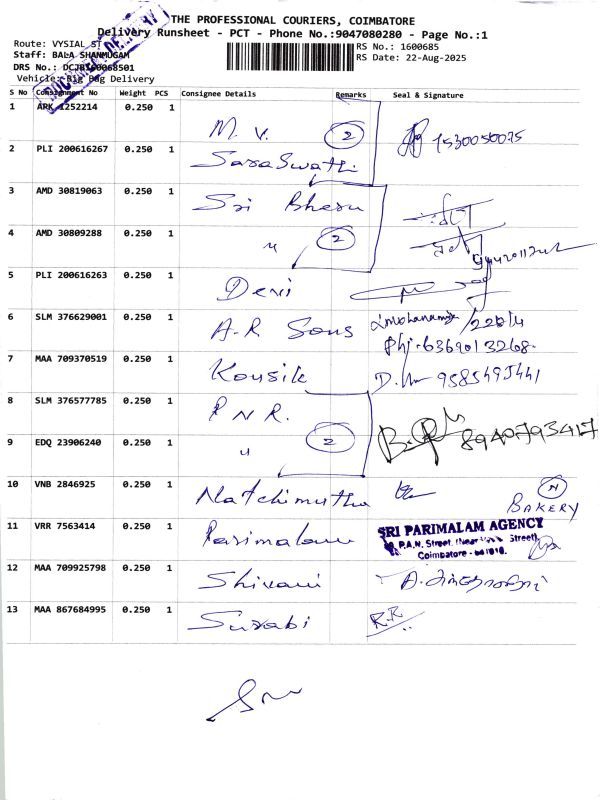 THE PROFESSIONAL COURIERS, COIMBATORE
Delivery Runsheet - PCT - Phone No.:9047080280 - Page No.:1
Route: VYSIAL ST
Staff: BALA SHANMUGAM
RS No.: 1600685
DRS No.: DCJBT60068501
RS Date: 22-Aug-2025
Vehicle: Big Bag Delivery
S No Consignment No Weight PCS Consignee Details Remarks Seal & Signature
1 ARK 1252214 0.250 1 M. V. 2 7530050075
2 PLI 200616267 0.250 1 Saraswathi
3 AMD 30819063 0.250 1 Sri Bheru
4 AMD 30809288 0.250 1 " 2
5 PLI 200616263 0.250 1 Devi
6 SLM 376629001 0.250 1 A.R Sons
Ph: 6369013268.
7 MAA 709370519 0.250 1 Kousik 9585495441
8 SLM 376577785 0.250 1 P N R.
9 EDQ 23906240 0.250 1 " 2 8940793417
10 VNB 2846925 0.250 1 Natchimuthu
BAKERY
11 VRR 7563414 0.250 1 Parimalam
SRI PARIMALAM AGENCY
P.A.N. Street, Street),
Coimbatore - 641 018.
12 MAA 709925798 0.250 1 Shivani
13 MAA 867684995 0.250 1 Surabi R.R